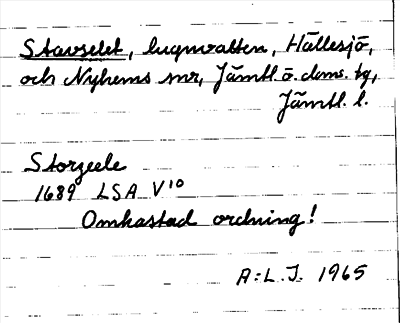 Stavselet, lugnvatten, Hällesjö,
och Nyhems snr, Jämtl. ö. doms. tg,
Jämtl. l.
Storzeele
1689 LSA V¹⁰
Omkastad ordning!
A.L.J. 1965